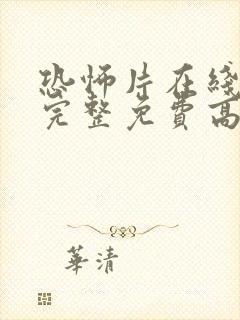 恐怖片在綫
完整免費高
華清